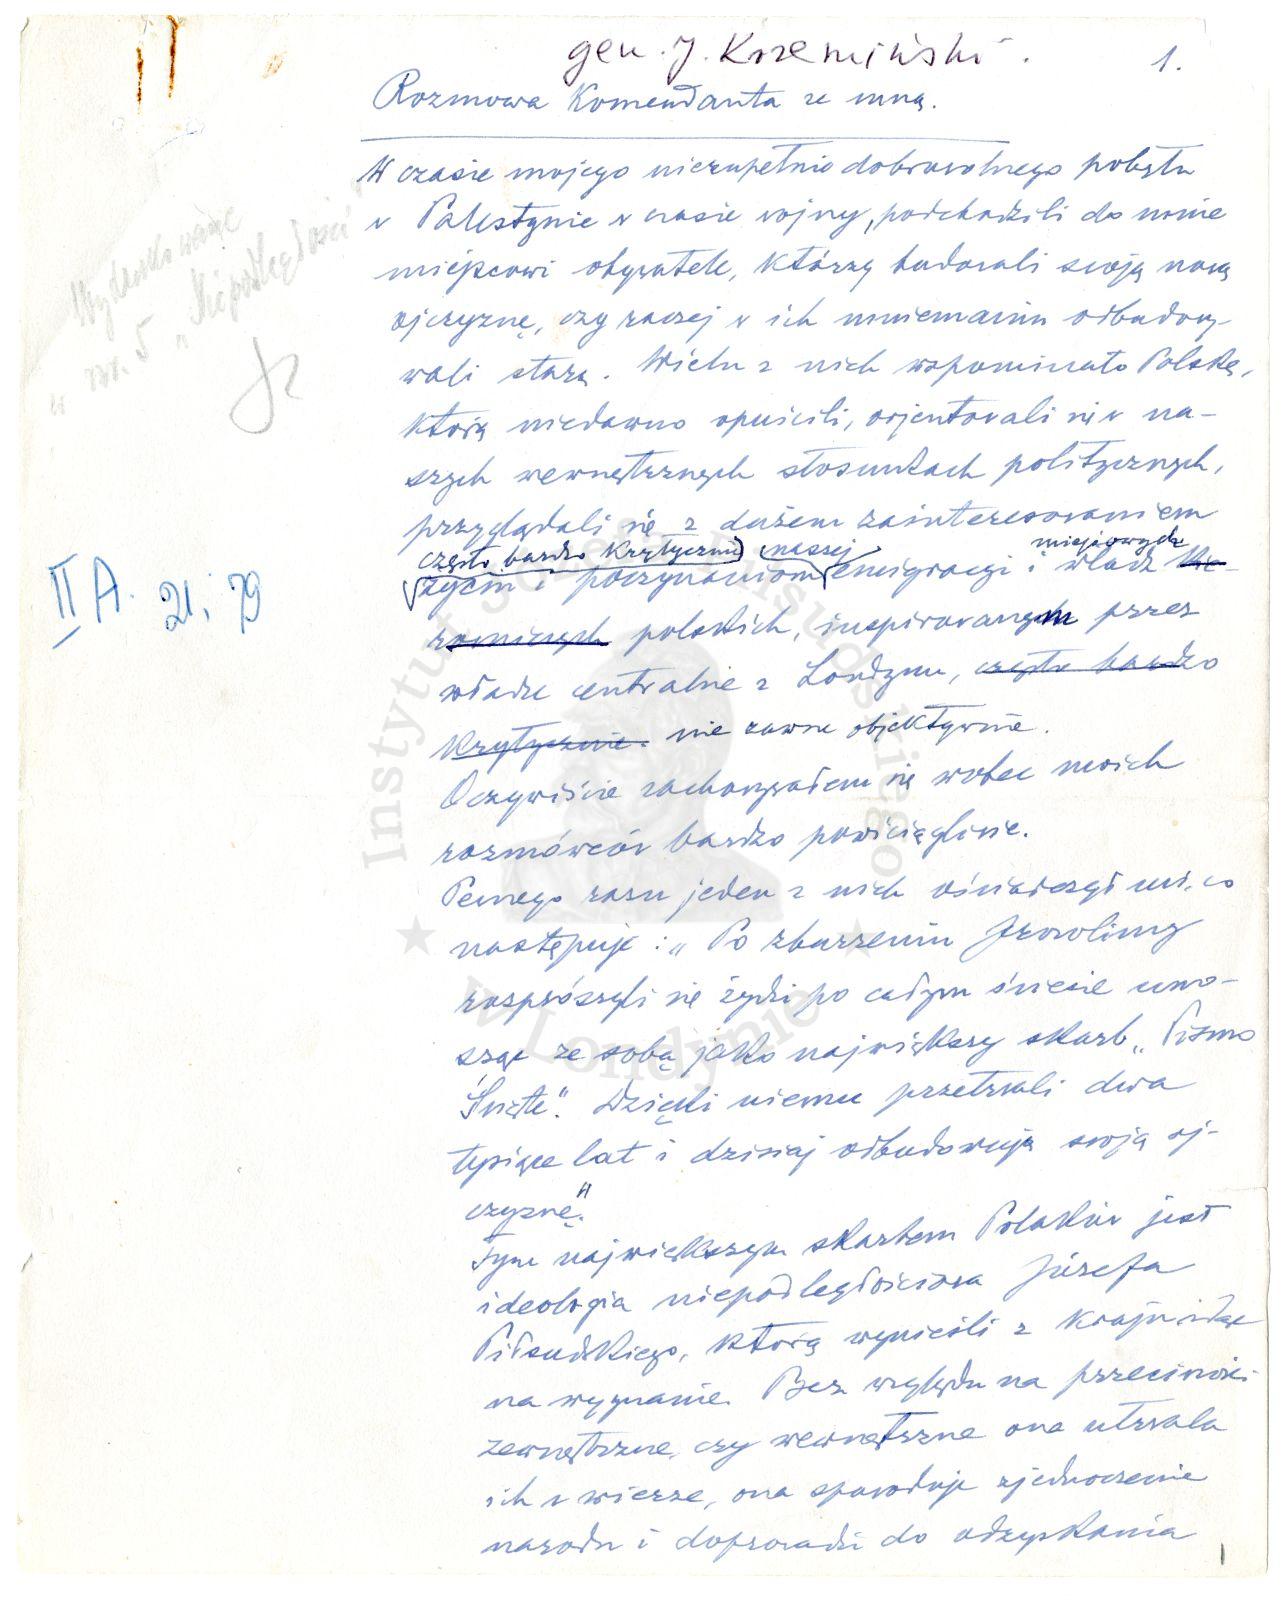 gen. J. Krzemiński.
1.
Rozmowa Komendanta ze mną.
W czasie mojego niezupełnie dobrowolnego pobytu
w Palestynie w czasie wojny, podchodzili do mnie
miejscowi obywatele, którzy budowali swoją nową
ojczyznę, czy raczej w ich mniemaniu odbudowy-
wali starą. Wielu z nich wspominało Polskę,
którą niedawno opuścili, orjentowali się w na-
szych wewnętrznych stosunkach politycznych,
przyglądali się z dużem zainteresowaniem
często bardzo krytycznie naszej miejscowych
życiu i poczynaniom emigracji i władz kie-
rowniczych polskich, inspirowanym przez
władze centralne z Londynu, często bardzo
krytycznie. nie zawsze objektywnie.
Oczywiście zachowywałem się wobec moich
rozmówców bardzo powściągliwie.
Pewnego razu jeden z nich oświadczył mi, co
następuje: „Po zburzeniu Jerozolimy
rozprószyli się żydzi po całym świecie uno-
sząc ze sobą jako największy skarb „Pismo
Święte". Dzięki niemu przetrwali dwa
tysiące lat i dzisiaj odbudowują swoją oj-
czyznę."
Tym największym skarbem Polaków jest
ideologia niepodległościowa Józefa
Piłsudskiego, którą wynieśli z kraju idąc
na wygnanie. Bez względu na przeciwności
zewnętrzne, czy wewnętrzne ona utrwala
ich w wierze, ona spowoduje zjednoczenie
narodu i doprowadzi do odzyskania
Wydrukowane
w nr. 5 „Niepodległości"
II A. 21; 79
Instytut Józefa Piłsudskiego
w Londynie